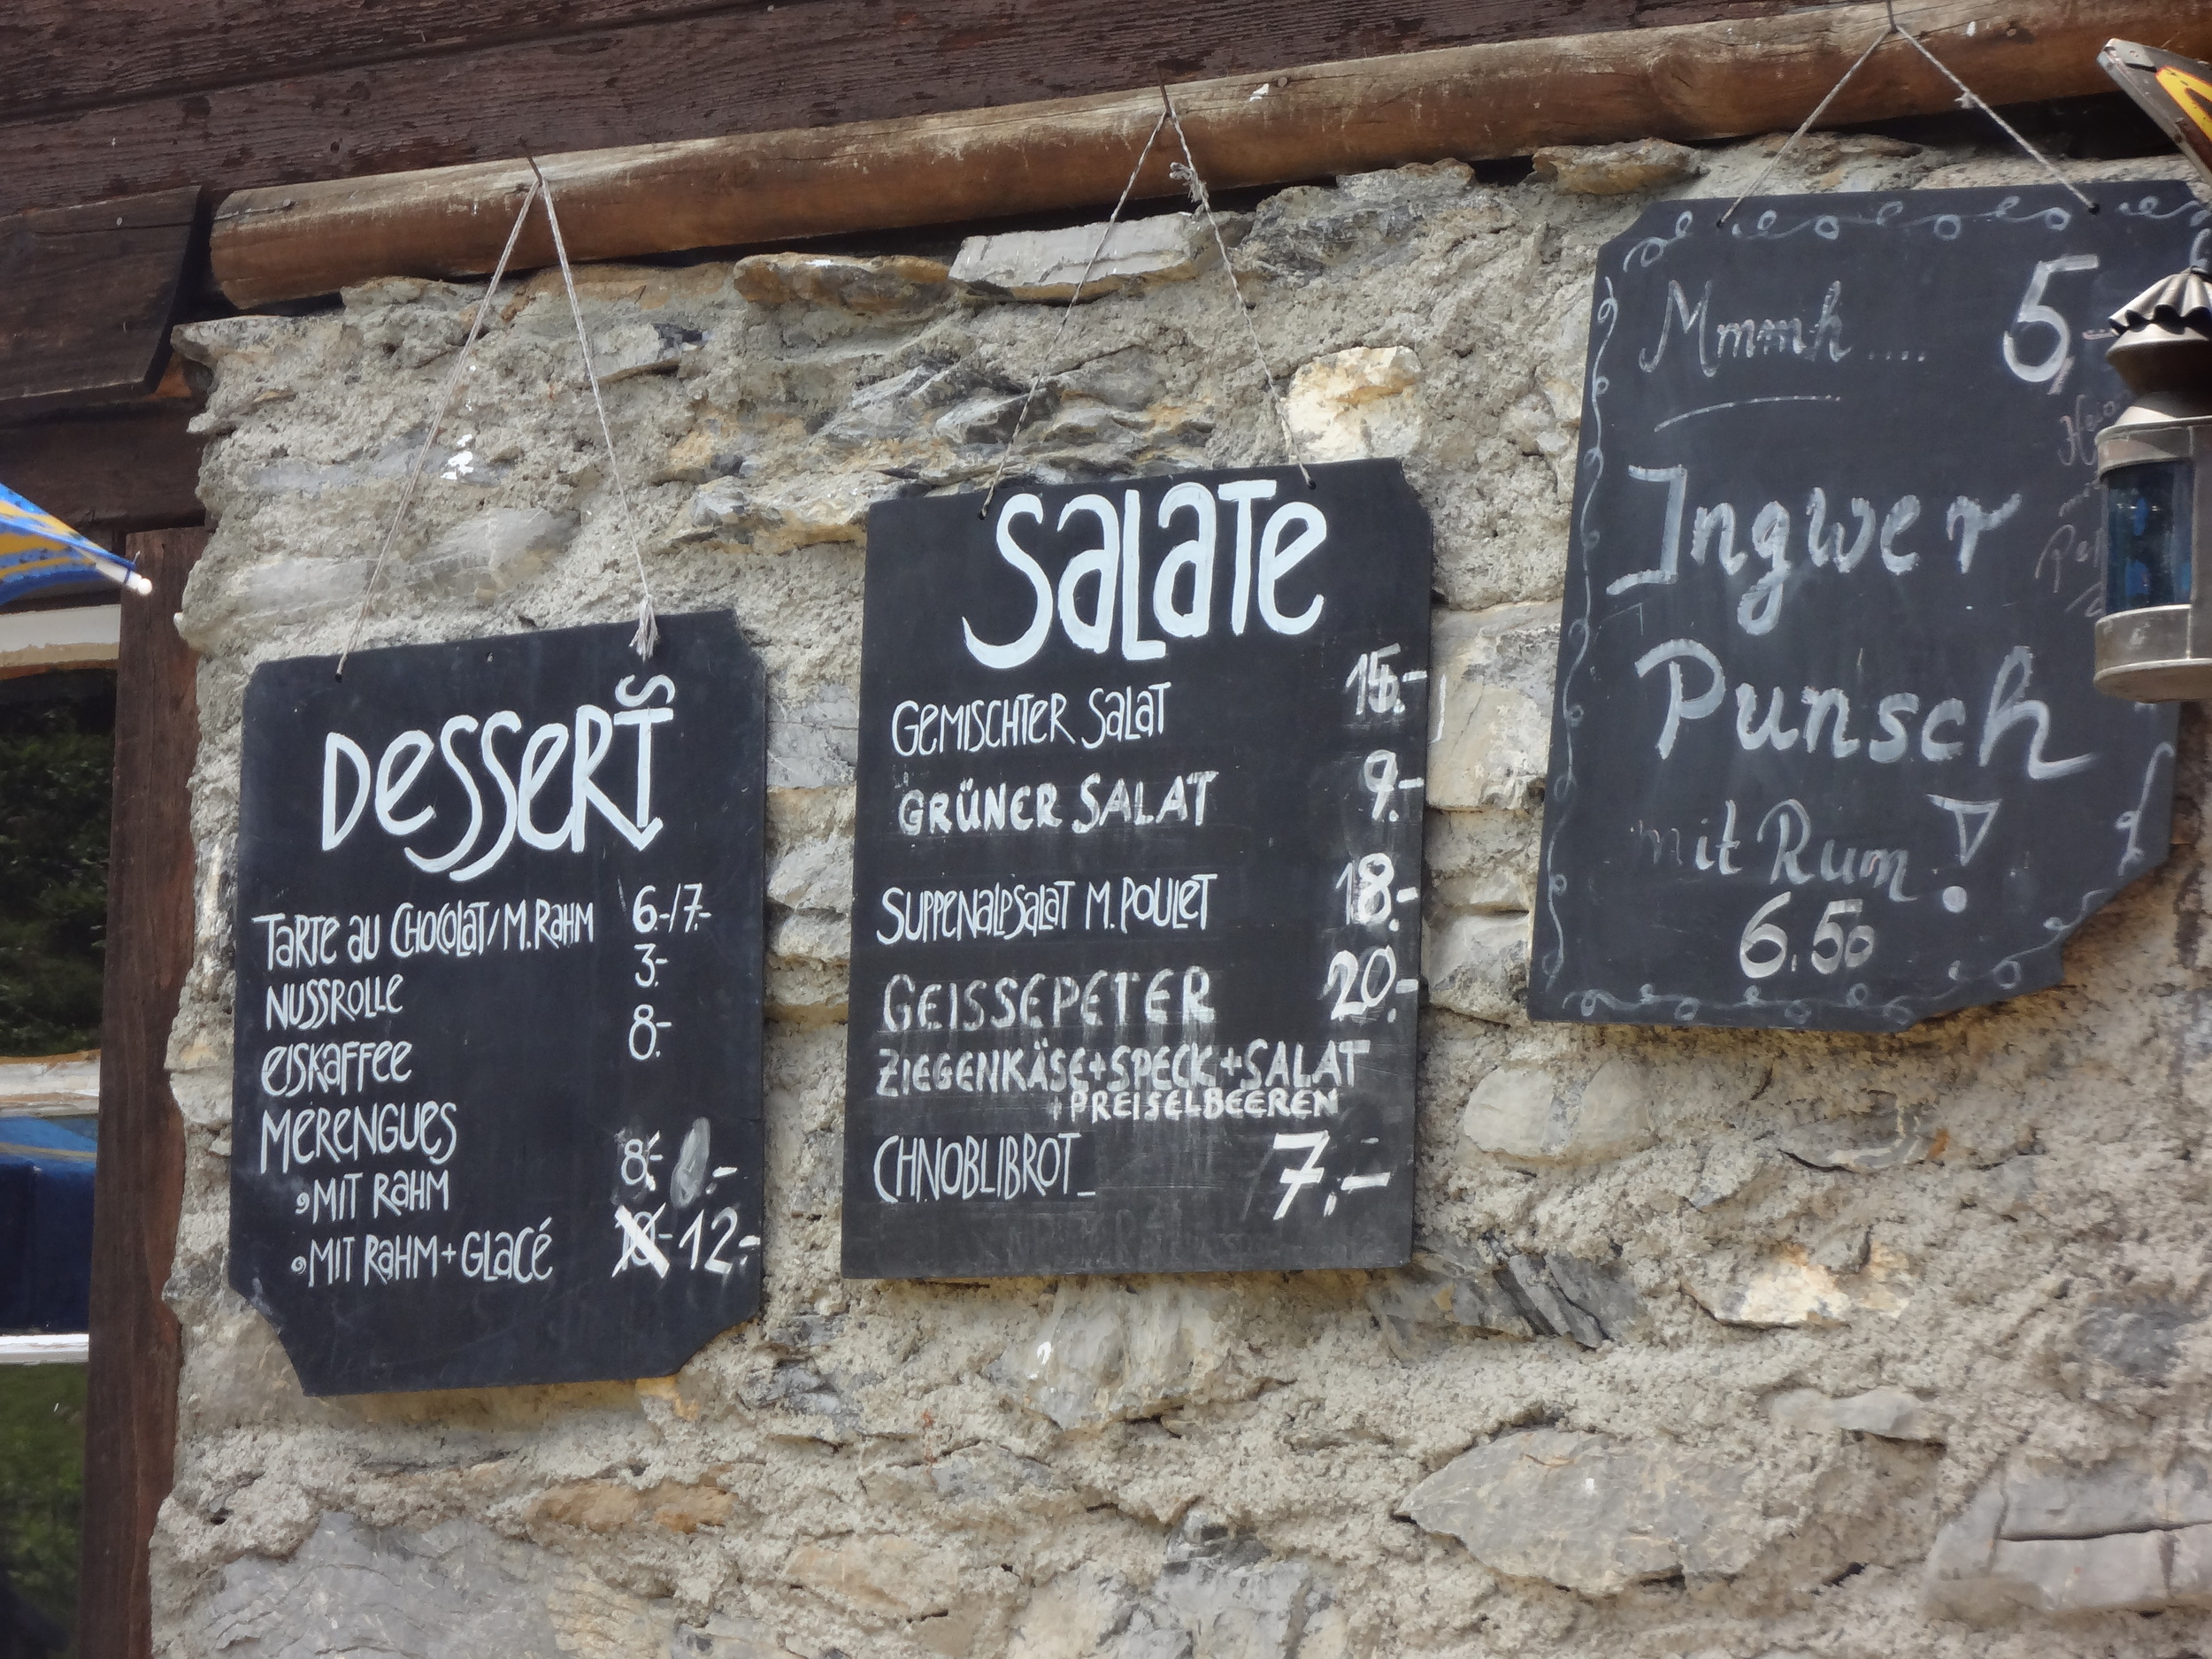 DesserTs
Tarte au Chocolat/M.Rahm 6.-/7.-
Nussrolle 3.-
Eiskaffee 8.-
Merengues
•mit Rahm 8.-
•mit Rahm+Glacé 12.-
Salate
Gemischter Salat 15.-
GRÜNER SALAT 9.-
Suppenalpsalat m. Poulet 18.-
GEISSEPETER 20.-
ZIEGENKÄSE+SPECK+SALAT
+PREISELBEEREN
CHNOBLIBROT_ 7.-
Mmmh.... 5,-
Ingwer
Punsch
mit Rum!
6.50